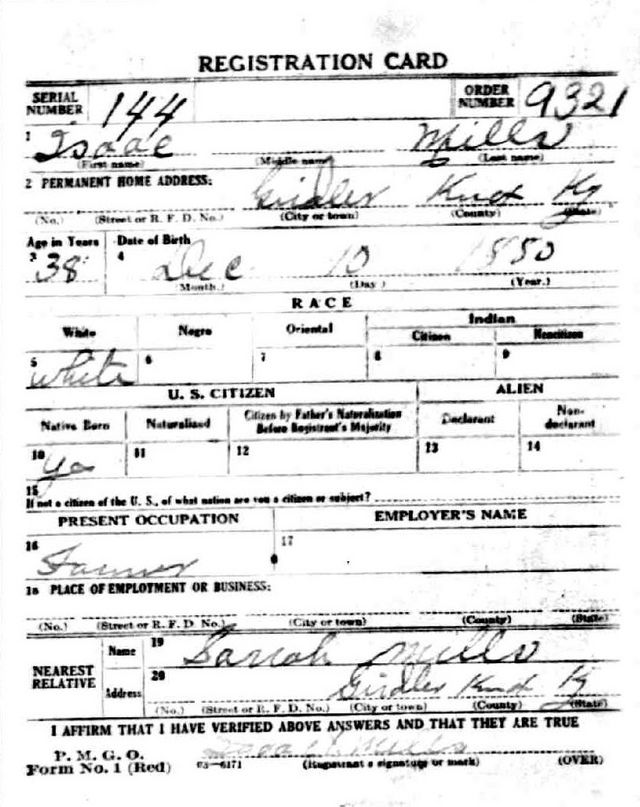 REGISTRATION CARD
SERIAL NUMBER 144 ORDER NUMBER 9321
1 Isaac Mills
(First name) (Middle name) (Last name)
2 PERMANENT HOME ADDRESS: Girdler Knox Ky
(No.) (Street or R. F. D. No.) (City or town) (County) (State)
Age in Years Date of Birth
3 38 4 Dec 10 1880
(Month.) (Day.) (Year.)
RACE
White Negro Oriental Indian
Citizen Noncitizen
5 White 6 7 8 9
U. S. CITIZEN ALIEN
Native Born Naturalized Citizen by Father's Naturalization Before Registrant's Majority Declarant Non-declarant
10 Yes 11 12 13 14
15
If not a citizen of the U. S., of what nation are you a citizen or subject?
PRESENT OCCUPATION EMPLOYER'S NAME
16 Farmer 17
18 PLACE OF EMPLOYMENT OR BUSINESS:
(No.) (Street or R. F. D. No.) (City or town) (County) (State)
NEAREST RELATIVE Name 19 Sarah Mills
Address 20 Girdler Knox Ky
(No.) (Street or R. F. D. No.) (City or town) (County) (State)
I AFFIRM THAT I HAVE VERIFIED ABOVE ANSWERS AND THAT THEY ARE TRUE
P. M. G. O.
Form No. 1 (Red) 03—6171 (Registrant's signature or mark) (OVER)